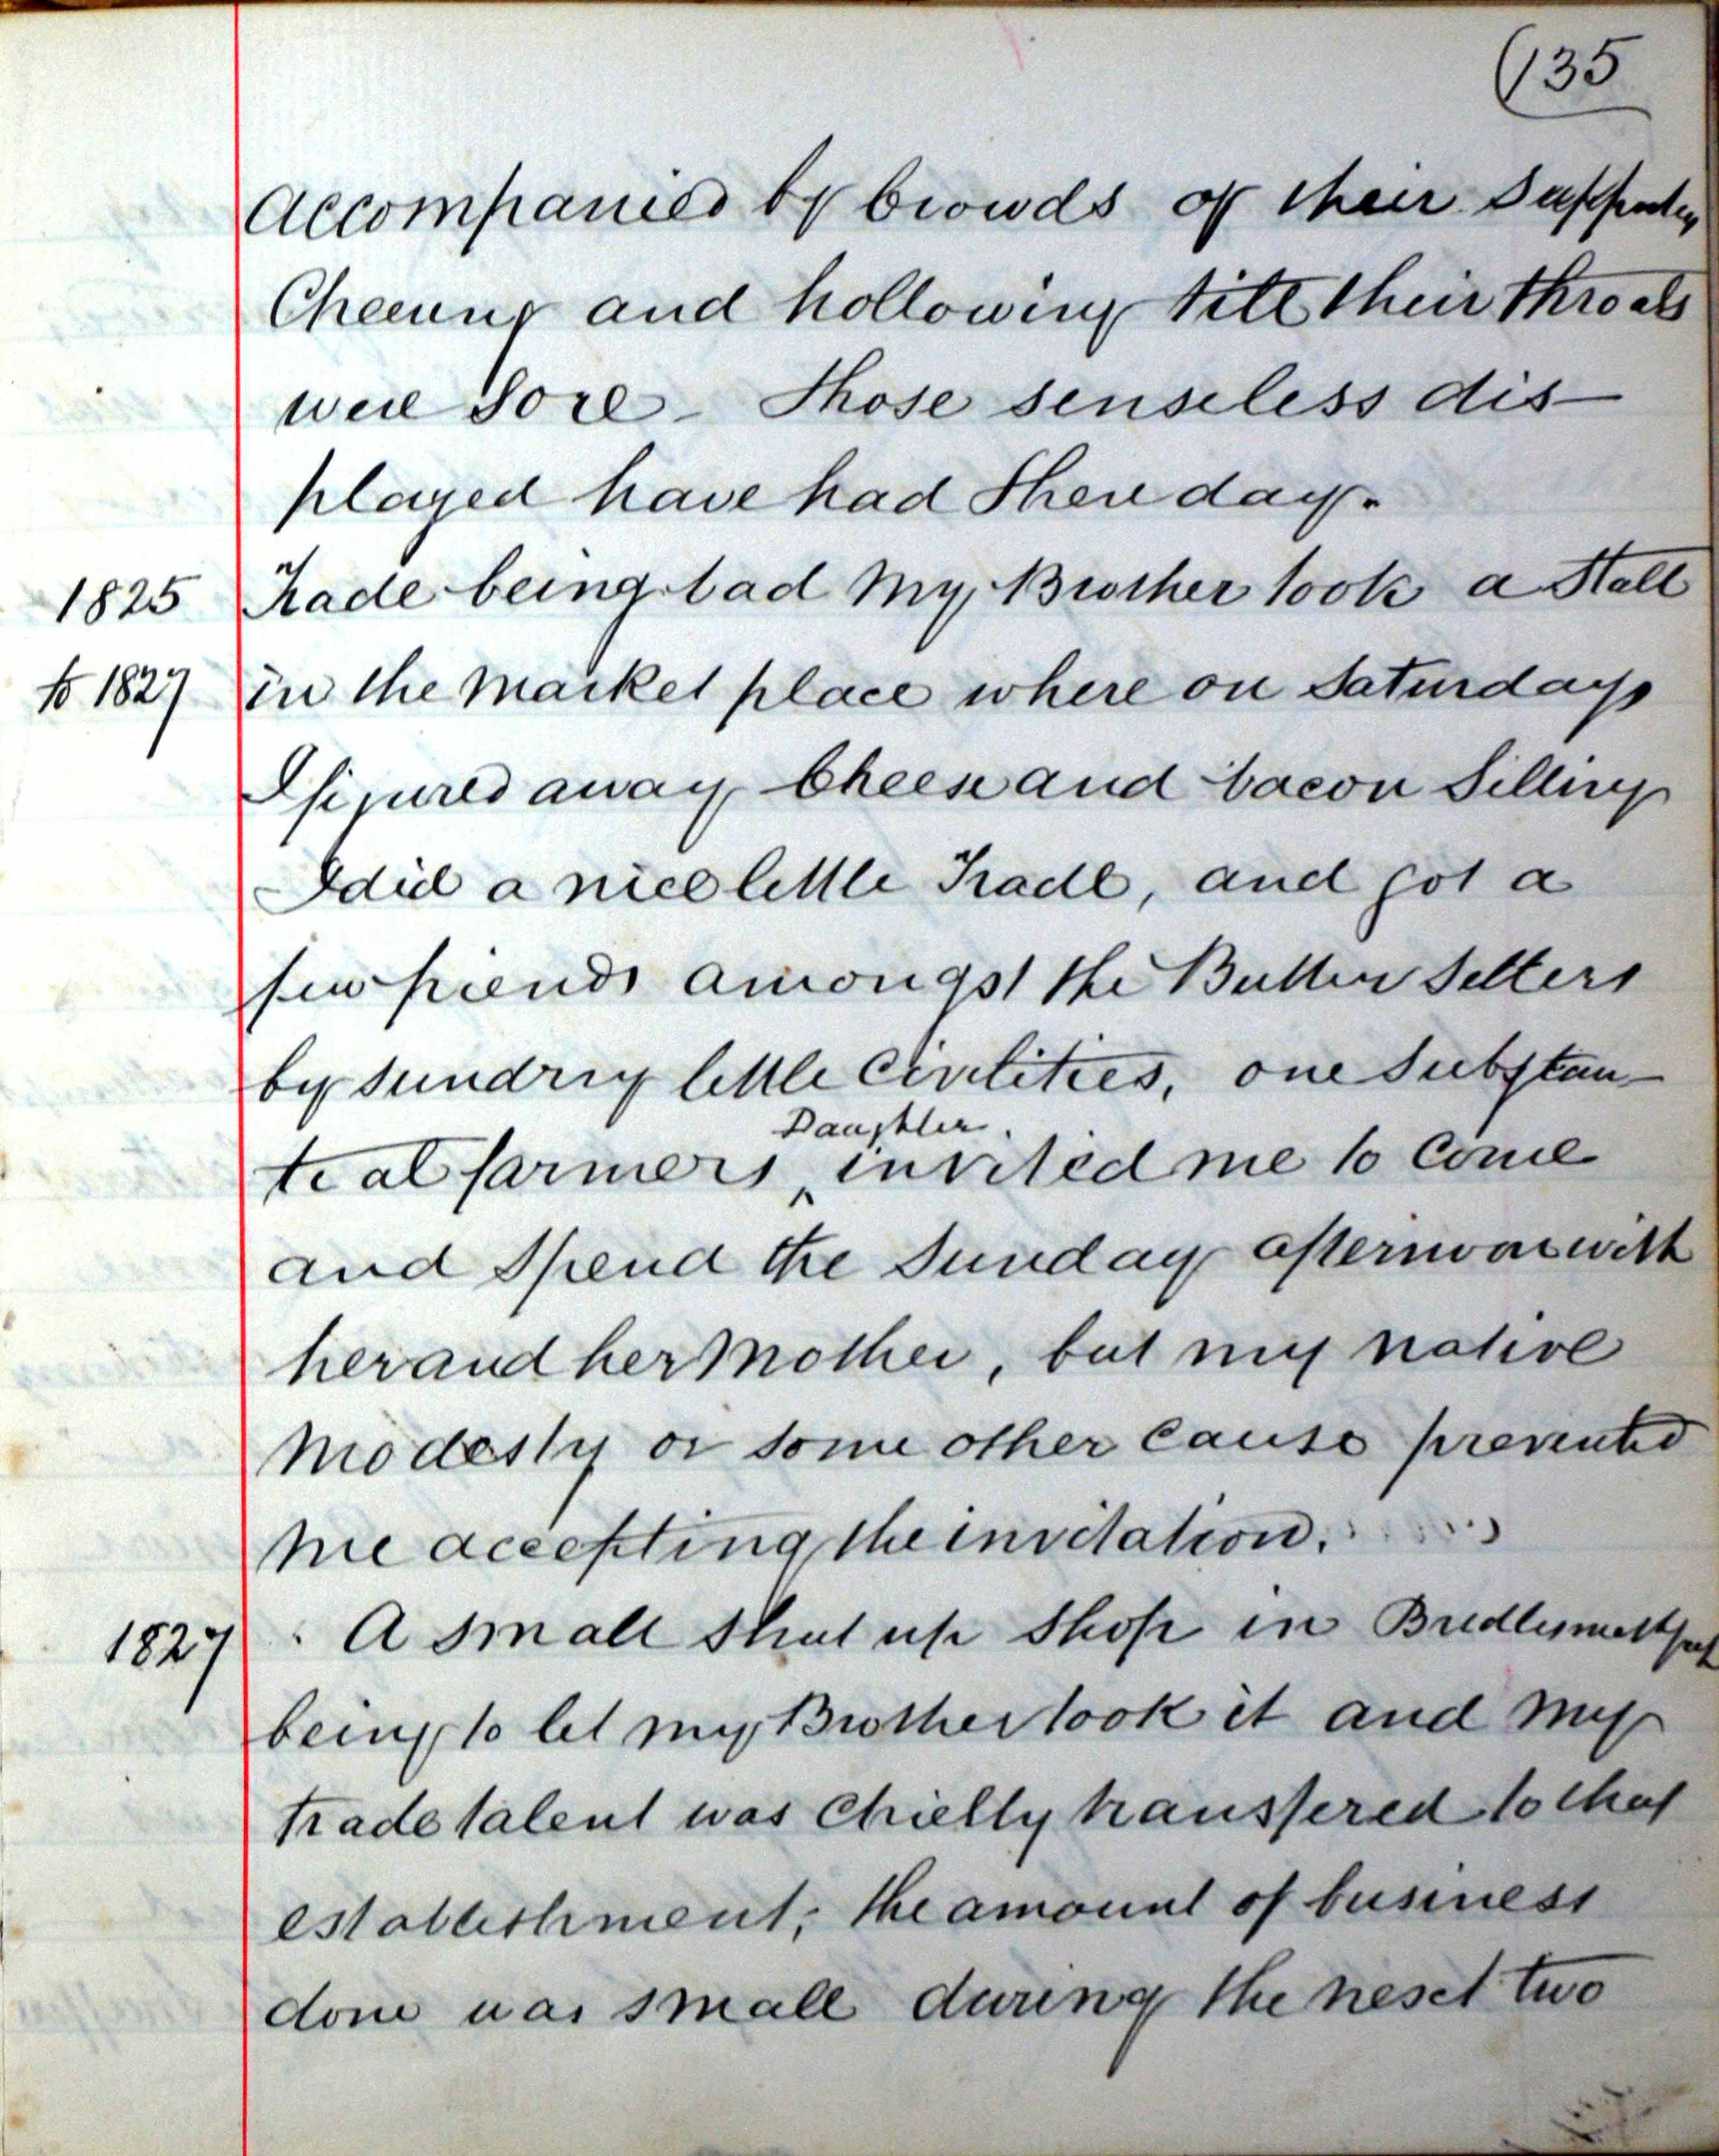 (135
accompanied by Crowds of their Supporters
Cheering and hollowing till their throats
were Sore - Those senseless dis-
played have had there day.
1825 Trade being bad My Brother took a Stall
to 1827 in the Market place where on Saturdays
I figured away Cheese and bacon Selling
I did a nice little Trade, and got a
few friends amongst the Butter Sellers
by sundry little Civilities, one Substan-
Daughter
tial farmers ^ invited me to Come
and Spend the Sunday afternoon with
her and her Mother, but my native
Modesty or some other Cause prevented
me accepting the invitation.
1827 A small Shut up Shop in
being to let my Brother took it and my
trade talent was Chiefly transfered to that
establishment; the amount of business
done was small during the next two